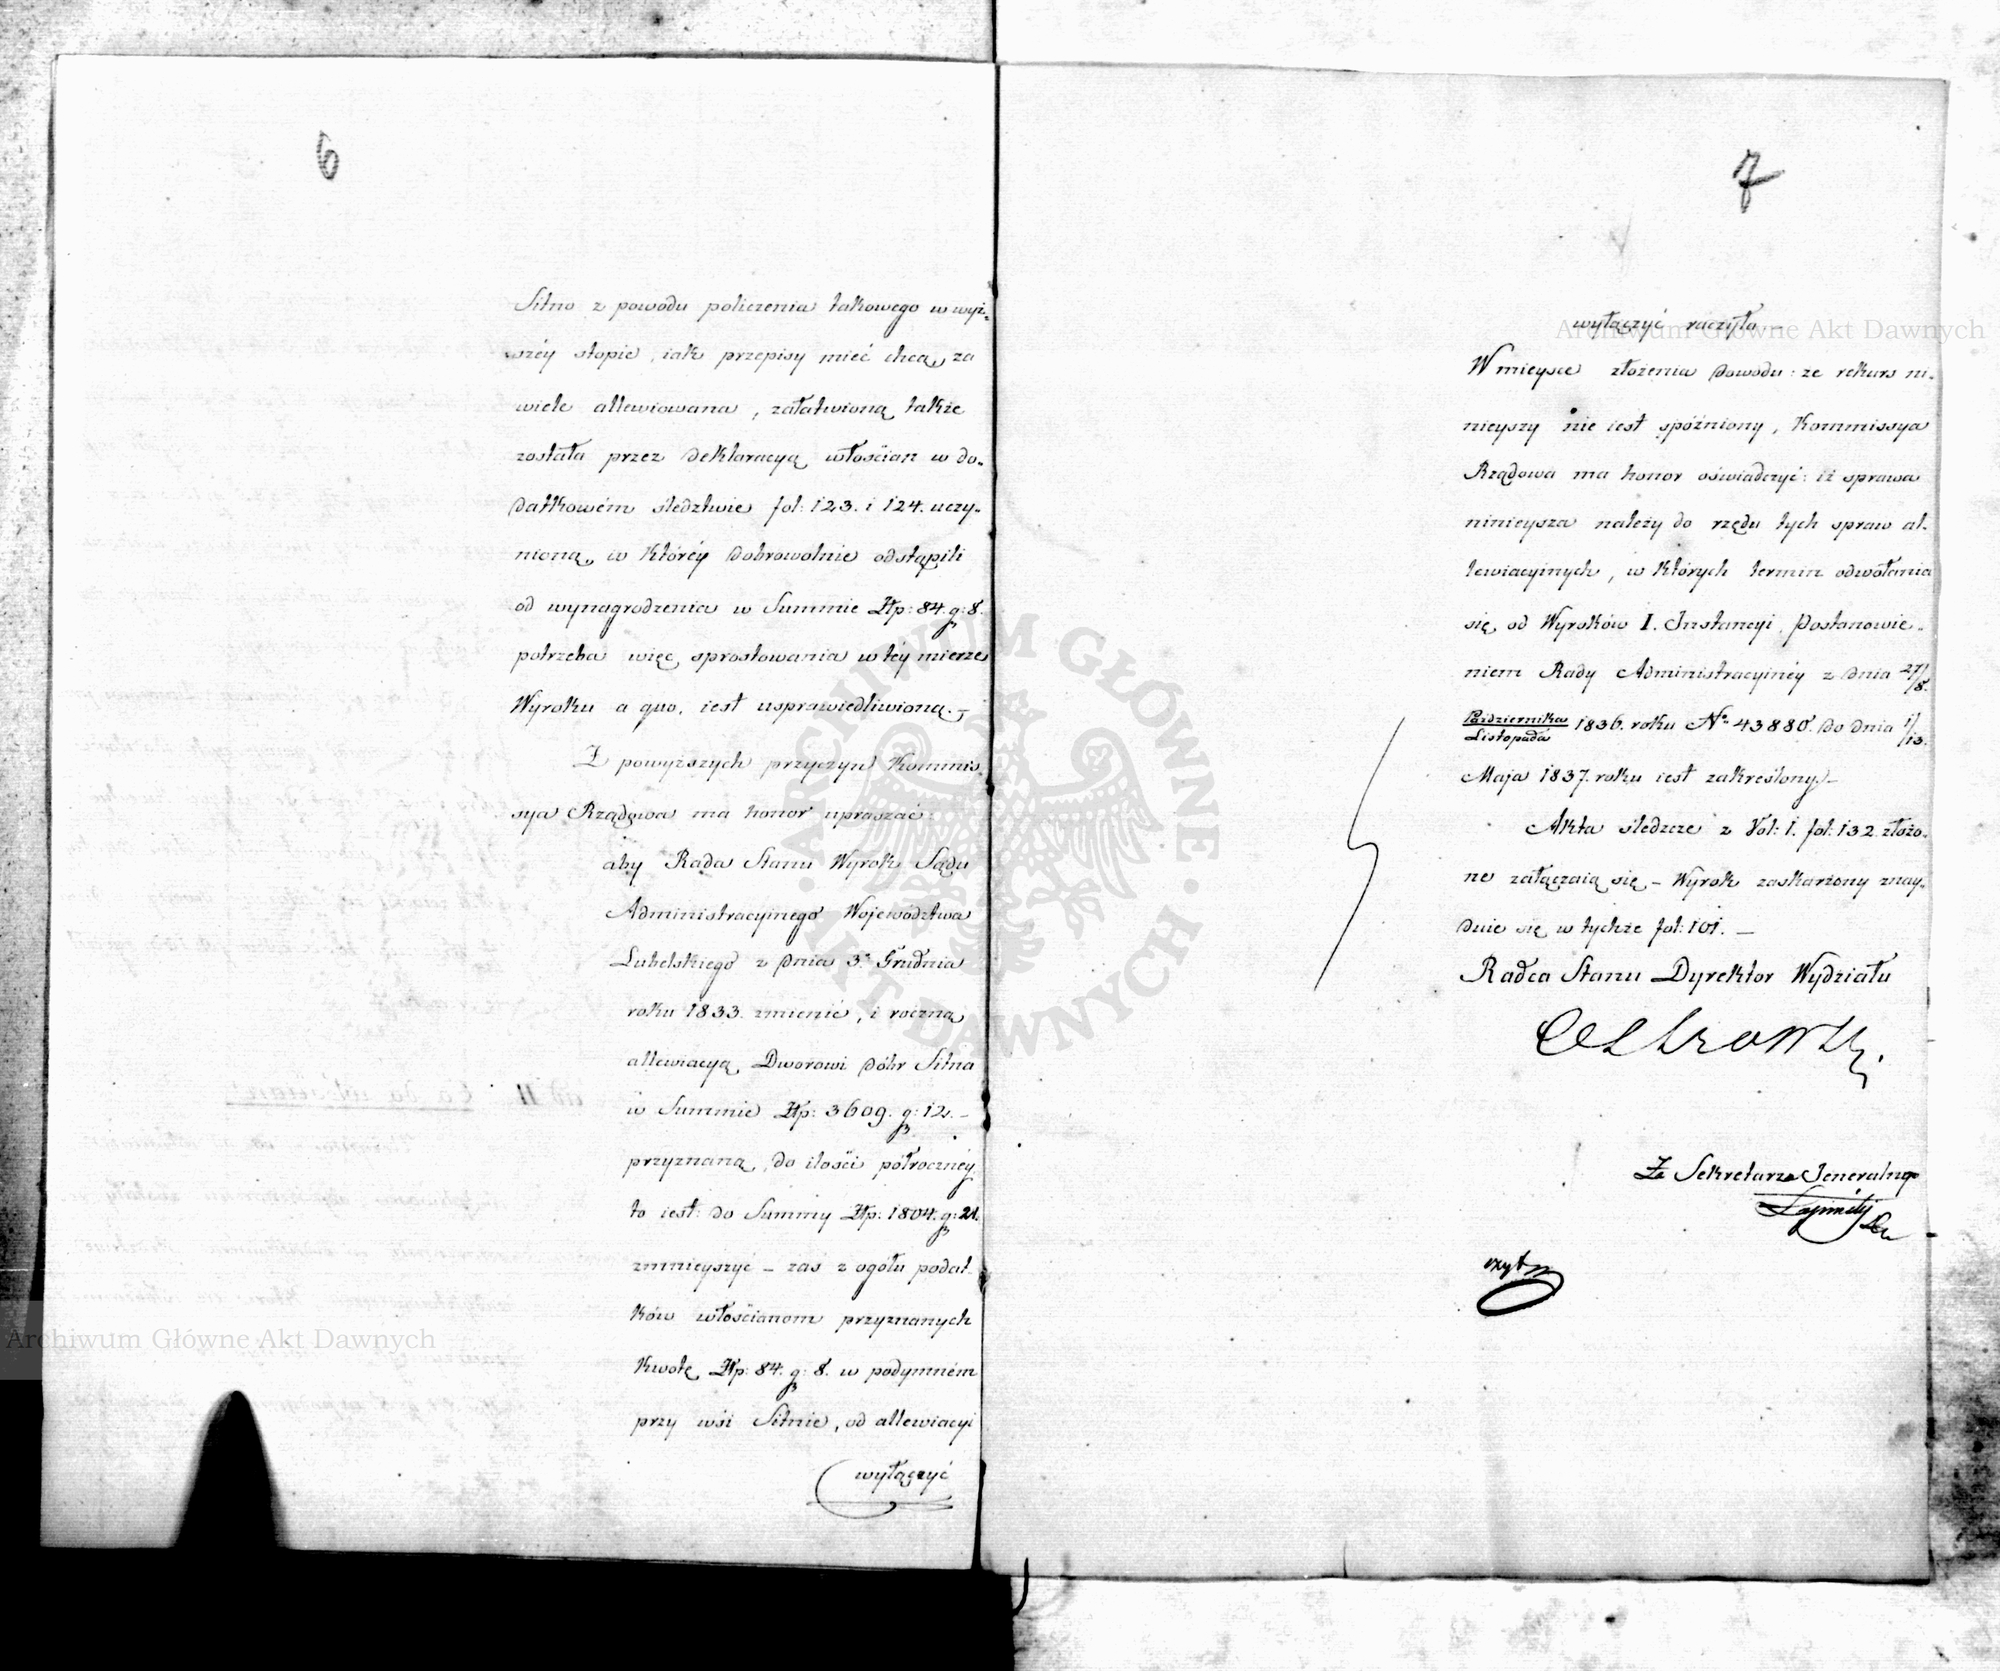 6
Sitno z powodu policzenia takowego w wyż-
széy stopie, iak przepisy mieć chcą, za
wiele allewiowana, załatwioną także
została przez deklaracyą włościan w do-
datkowém śledztwie fol: 123. i 124. uczy-
nioną, w któréy dobrowolnie odstąpili
od wynagrodzenia w Summie Złp: 84. g: 8.
potrzeba więc sprostowania w téy mierze
Wyroku a quo, iest usprawiedliwioną. –
Z powyższych przyczyn Kommis-
sya Rządowa ma honor upraszać:
aby Rada Stanu Wyrok Sądu
Administracyinego Województwa
Lubelskiego z dnia 3. Grudnia
roku 1833. zmienić, i roczną
allewiacyą Dworowi dóbr Sitna
w Summie Złp: 3609. g: 12. –
przyznaną, do ilości półrocznéy
to iest: do Summy Złp: 1804. g: 21.
zmnieyszyć – zaś z ogółu podat-
ków włościanom przyznanych
kwotę Złp: 84. g: 8. w podymném
przy wsi Sitnie, od allewiacyi
wyłączyć
7
wyłączyć raczyła –
W mieysce złożenia dowodu: że rekurs ni-
nieyszy nie iest spóźniony, Kommissya
Rządowa ma honor oświadczyć: iż sprawa
ninieysza należy do rzędu tych spraw al-
lewiacyinych, w których termin odwołania
się od Wyroków I. Instancyi, Postanowie-
niem Rady Administracyinéy z dnia 27/8.
Października/Listopada 1836. roku No. 43880. do dnia 1/13.
Maja 1837. roku iest zakreślony. –
Akta śledcze z Vol: I. fol: 132. złożo-
ne załączaią się – Wyrok zaskarżony znay-
duie się w tychże fol: 101. –
Radca Stanu Dyrektor Wydziału
Za Sekretarza Jeneralnego
czytał
Archiwum Główne Akt Dawnych
Archiwum Główne Akt Dawnych
ARCHIWUM GŁÓWNE • AKT DAWNYCH •